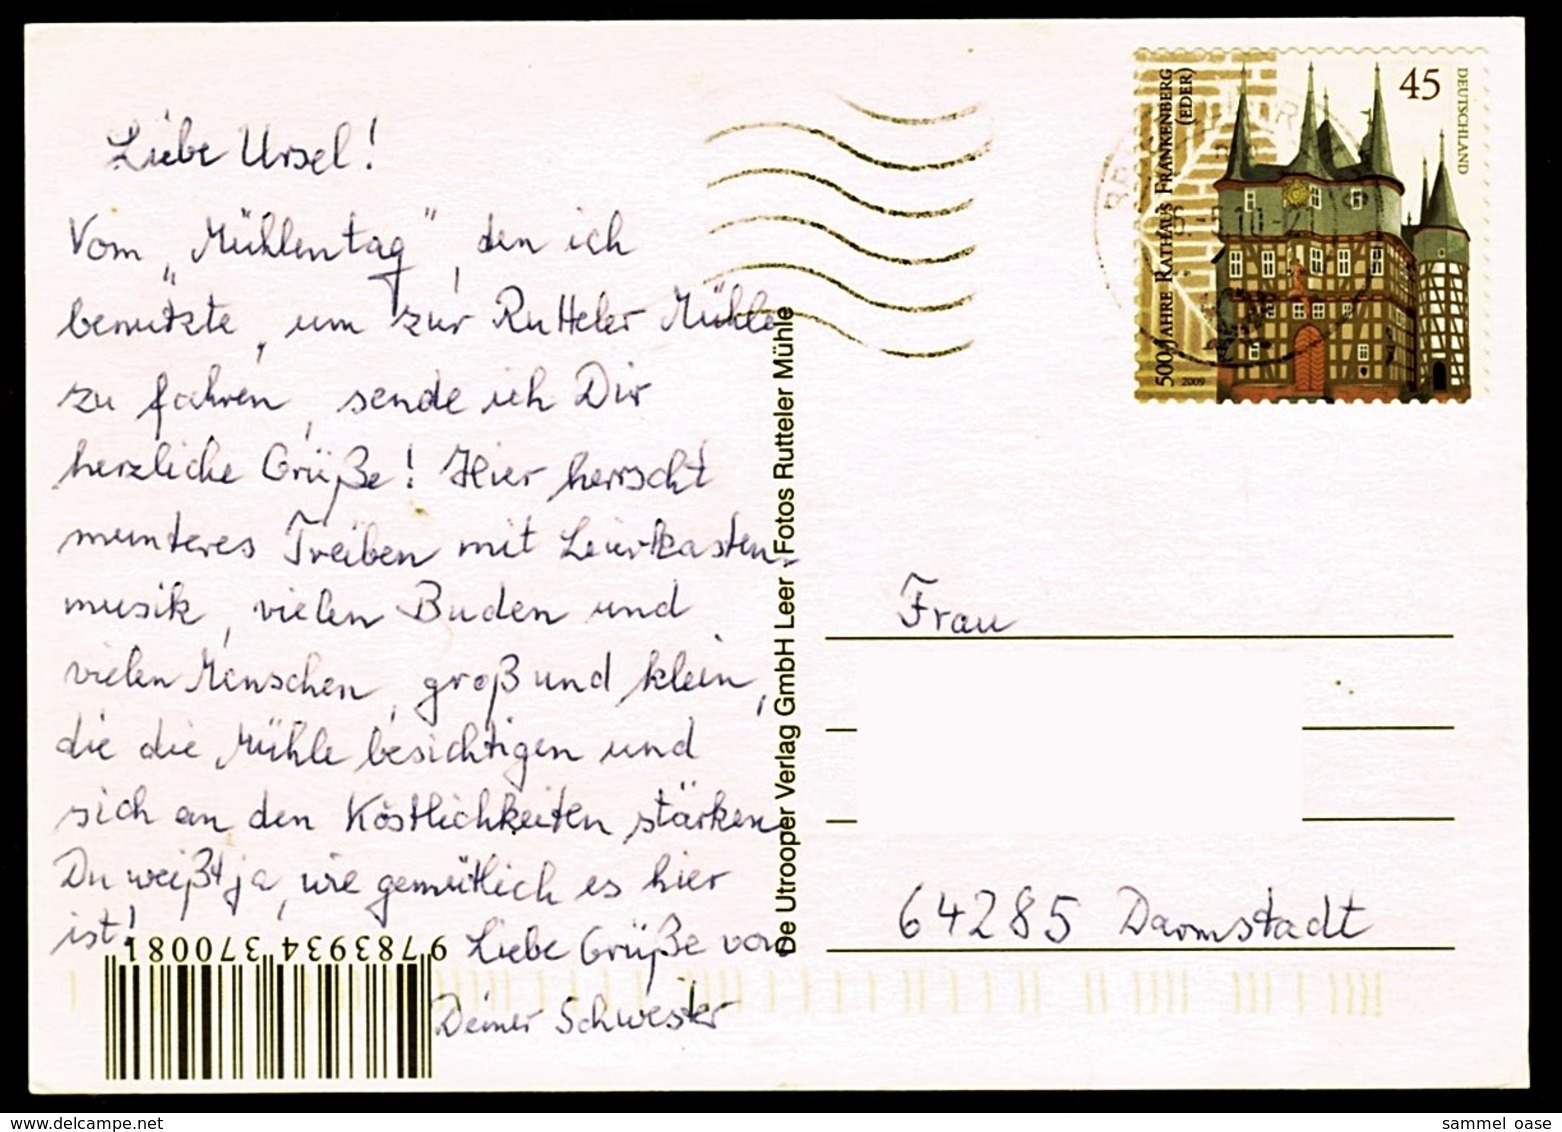 Liebe Ursel!
Vom „Mühlentag“, den ich
benutzte, um zur Rutteler Mühle
zu fahren, sende ich Dir
herzliche Grüße! Hier herrscht
munteres Treiben mit Leierkasten-
musik, vielen Buden und
vielen Menschen, groß und klein,
die die Mühle besichtigen und
sich an den Köstlichkeiten stärken.
Du weißt ja, wie gemütlich es hier
ist!
Liebe Grüße von
Deiner Schwester
9 783934 370081
De Utrooper Verlag GmbH Leer · Fotos Rutteler Mühle
500 JAHRE RATHAUS FRANKENBERG
(EDER)
2009
45
DEUTSCHLAND
Frau
64285 Darmstadt
sammel_oase